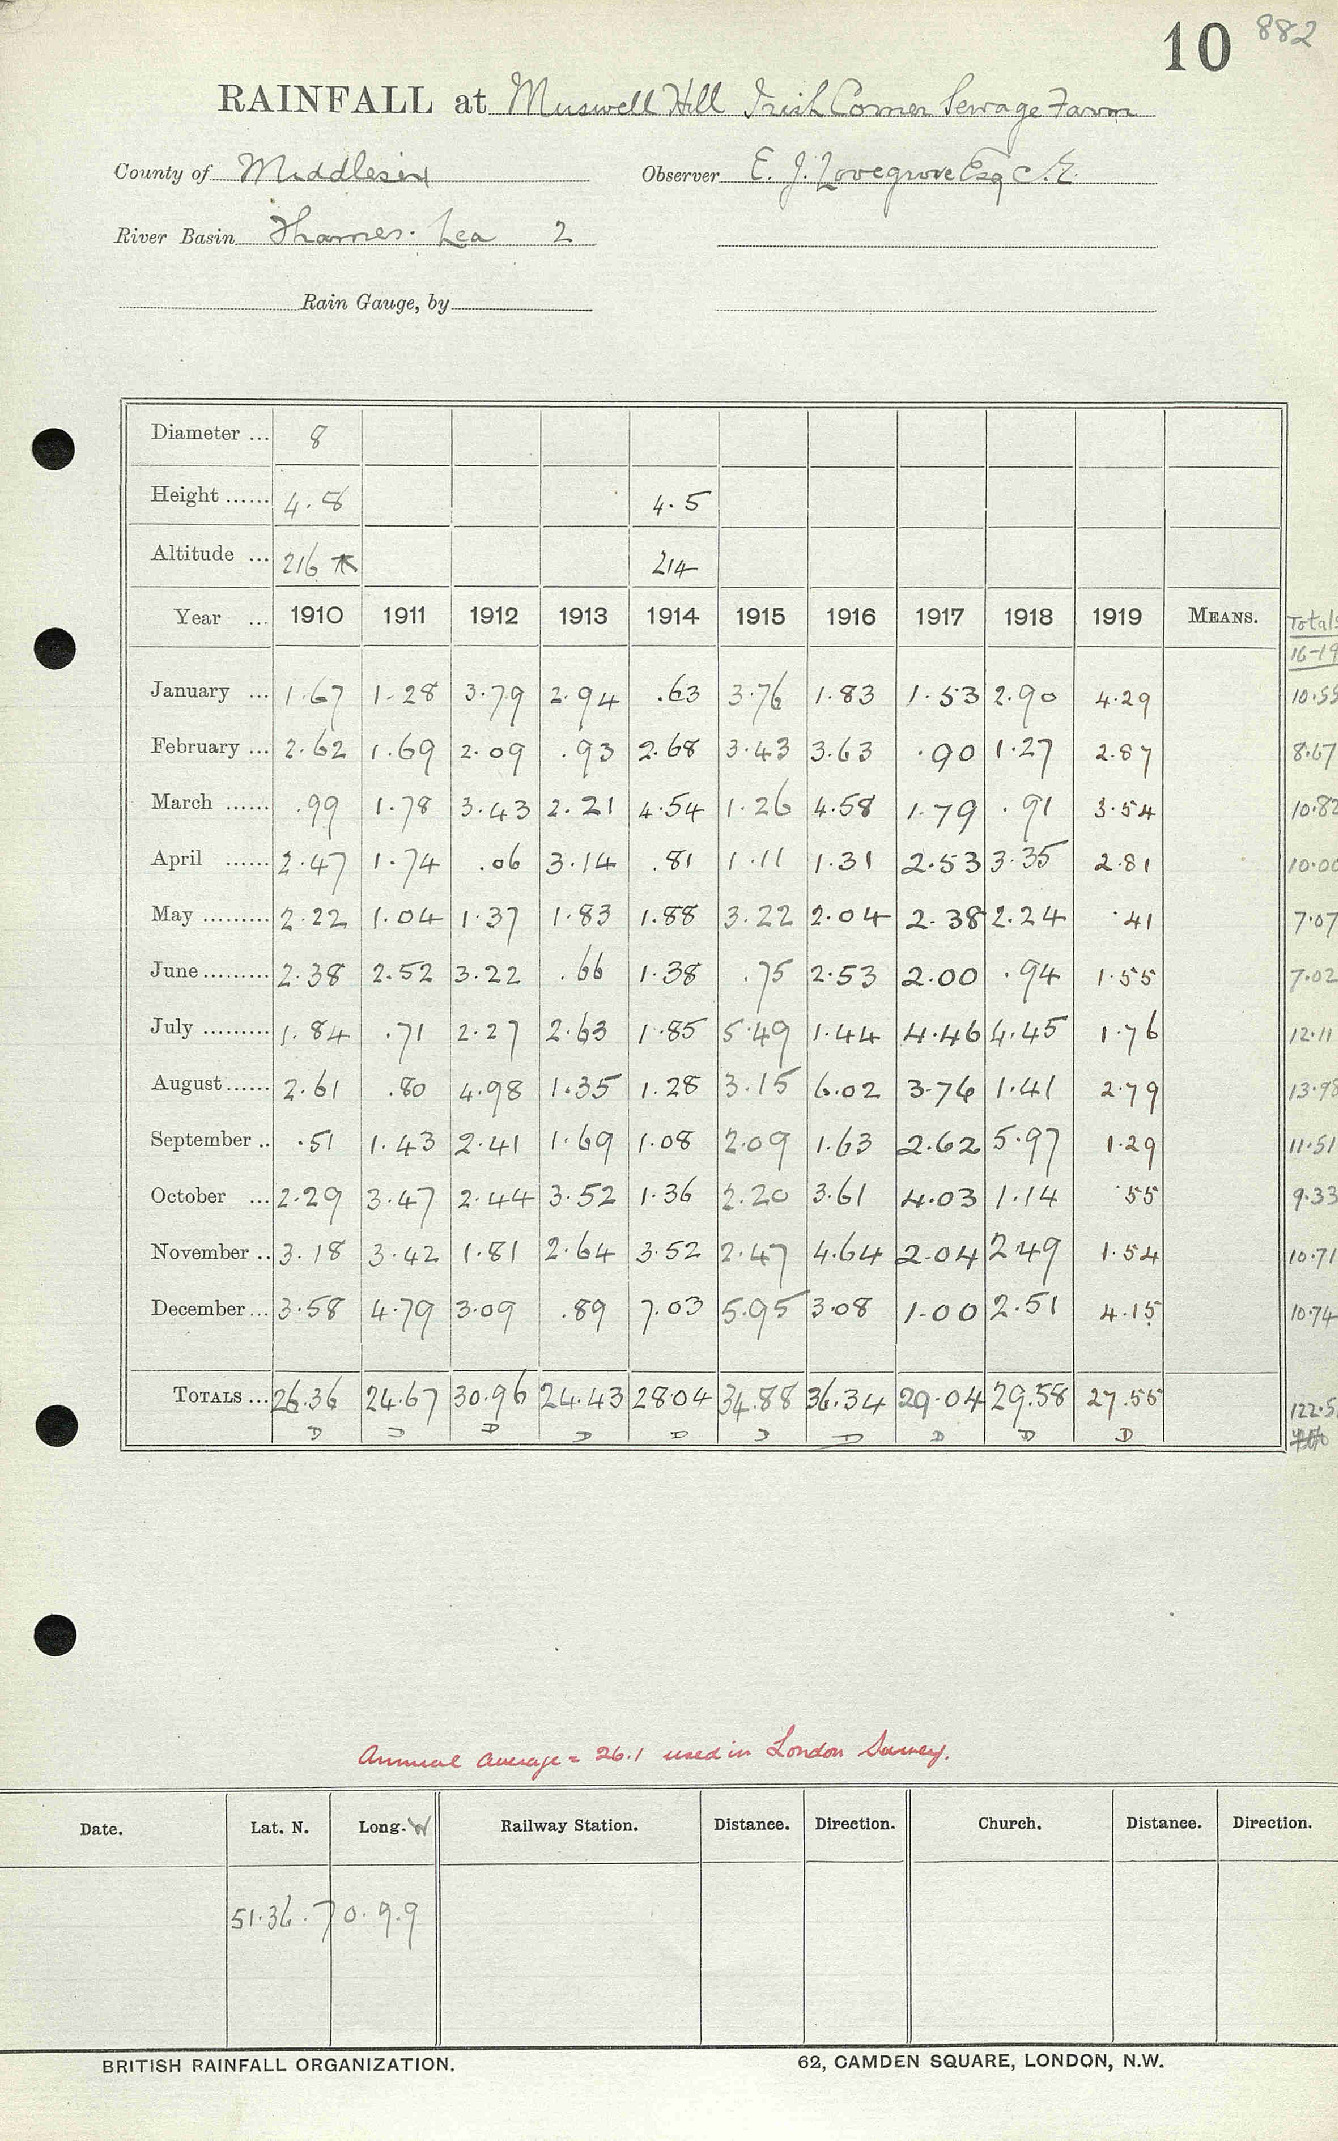 10 882
RAINFALL at Muswell Hill Irish Corner Sewage Farm
County of Middlesex Observer E. J. Lovegrove Esq C.E.
River Basin Thames. Lea 2
Rain Gauge, by
Diameter ... 8
Height ...... 4.8 4.5
Altitude ... 216 214
Year ... 1910 1911 1912 1913 1914 1915 1916 1917 1918 1919 MEANS. Totals
16-19
January ... 1.67 1.28 3.79 2.94 .63 3.76 1.83 1.53 2.90 4.29 10.55
February ... 2.62 1.69 2.09 .93 2.68 3.43 3.63 .90 1.27 2.87 8.67
March ...... .99 1.78 3.43 2.21 4.54 1.26 4.58 1.79 .91 3.54 10.82
April ...... 2.47 1.74 .06 3.14 .81 1.11 1.31 2.53 3.35 2.81 10.00
May ......... 2.22 1.04 1.37 1.83 1.88 3.22 2.04 2.38 2.24 .41 7.07
June ......... 2.38 2.52 3.22 .66 1.38 .75 2.53 2.00 .94 1.55 7.02
July ......... 1.84 .71 2.27 2.63 1.85 5.49 1.44 4.46 4.45 1.76 12.11
August ...... 2.61 .80 4.98 1.35 1.28 3.15 6.02 3.76 1.41 2.79 13.98
September .. .51 1.43 2.41 1.69 1.08 2.09 1.63 2.62 5.97 1.29 11.51
October ... 2.29 3.47 2.44 3.52 1.36 2.20 3.61 4.03 1.14 .55 9.33
November .. 3.18 3.42 1.81 2.64 3.52 2.47 4.64 2.04 2.49 1.54 10.71
December ... 3.58 4.79 3.09 .89 7.03 5.95 3.08 1.00 2.51 4.15 10.74
TOTALS ... 26.36 24.67 30.96 24.43 28.04 34.88 36.34 29.04 29.58 27.55 122.5
D D D D D D D D D D
Annual average = 26.1 used in London Survey.
Date. Lat. N. Long. W Railway Station. Distance. Direction. Church. Distance. Direction.
51.36.7 0.9.9
BRITISH RAINFALL ORGANIZATION. 62, CAMDEN SQUARE, LONDON, N.W.